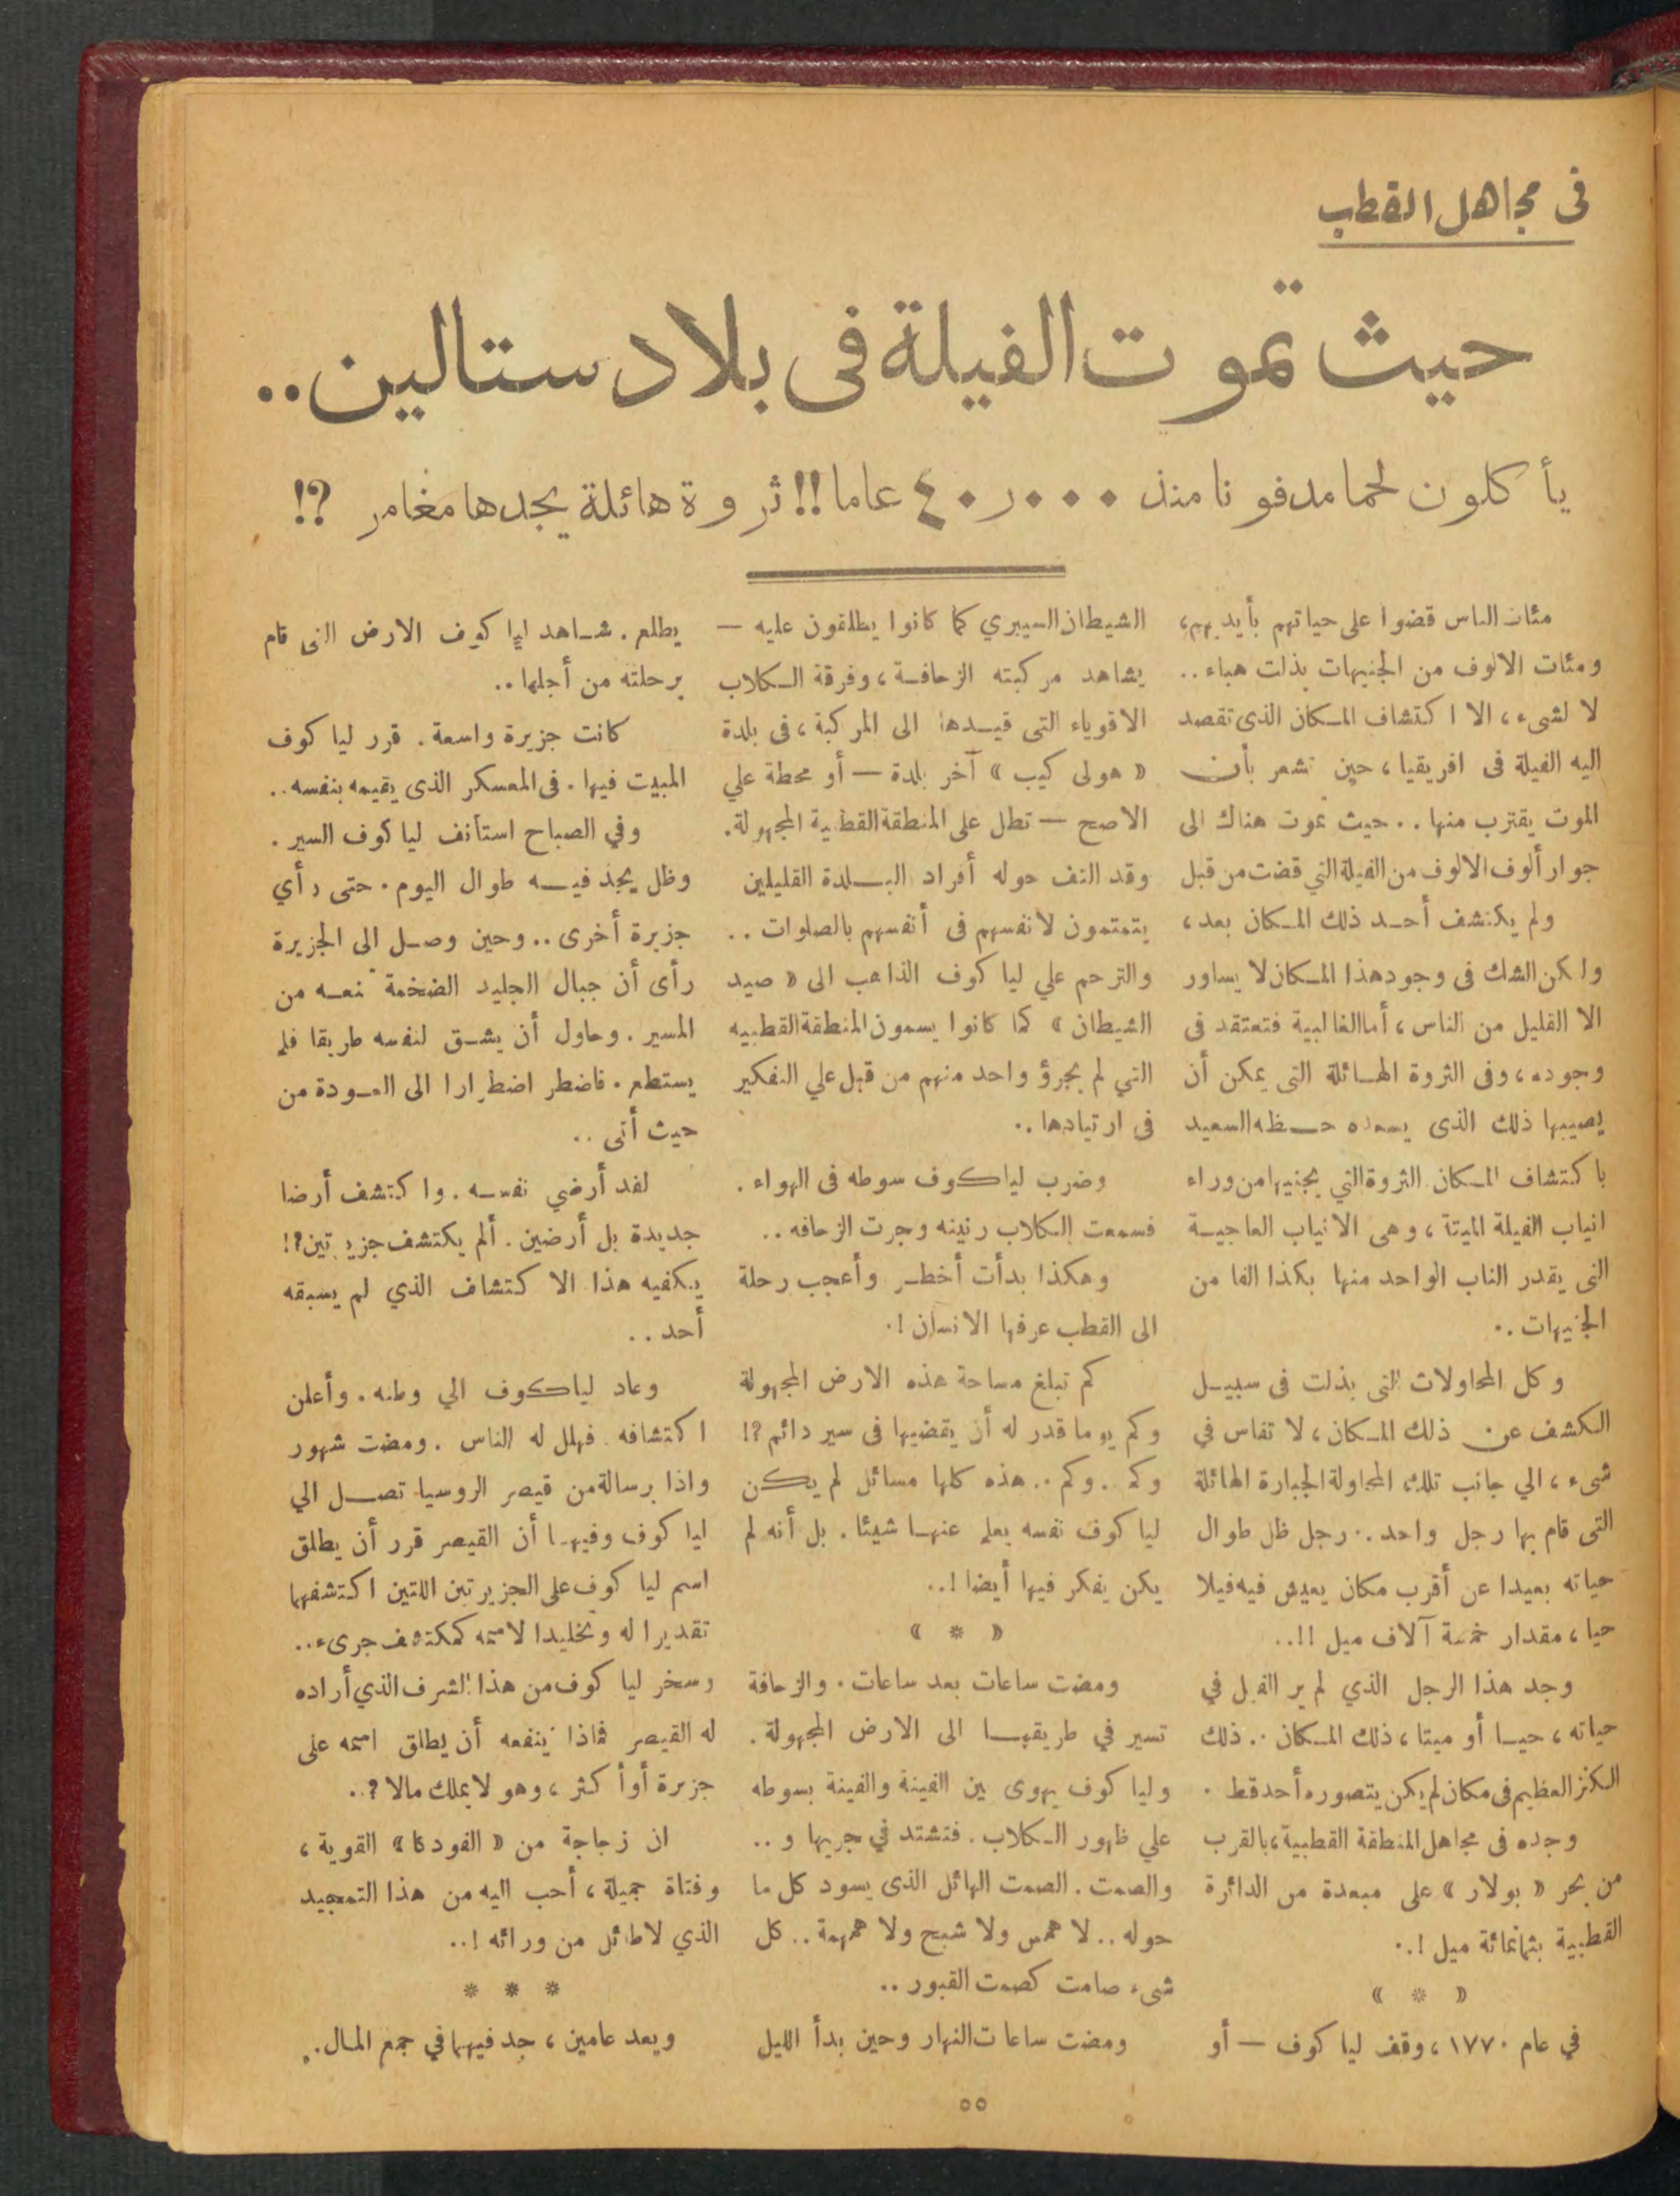 فى مجاهل القطب
حيث تموت الفيلة فى بلاد ستالين..
يأكلون لحما مدفونا منذ ٤٠ر٠٠٠ عاما!! ثروة هائلة يجدها مغامر ?!
مئات الناس قضوا على حياتهم بأيديهم،
ومئات الالوف من الجنيهات بذلت هباء..
لا لشىء، الا اكتشاف المكان الذى تقصد
اليه الفيلة فى افريقيا، حين تشعر بأن
الموت يقترب منها.. حيث تموت هناك الى
جوار ألوف الالوف من الفيلة التي قضت من قبل
ولم يكتشف أحد ذلك المكان بعد،
ولكن الشك فى وجود هذا المكان لا يساور
الا القليل من الناس، أما الغالبية فتعتقد فى
وجوده، وفى الثروة الهائلة التى يمكن أن
يصيبها ذلك الذى يسعده حظه السعيد
باكتشاف المكان. الثروة التي يجنيها من وراء
انياب الفيلة الميتة، وهى الانياب العاجية
التى يقدر الناب الواحد منها بكذا الفا من
الجنيهات..
وكل المحاولات التى بذلت فى سبيل
الكشف عن ذلك المكان، لا تقاس في
شىء، الي جانب تلك المحاولة الجبارة الهائلة
التى قام بها رجل واحد.. رجل ظل طوال
حياته بعيدا عن أقرب مكان يعيش فيه فيلا
حيا، مقدار خمسة آلاف ميل !!..
وجد هذا الرجل الذي لم ير الفيل في
حياته، حيا أو ميتا، ذلك المكان.. ذلك
الكنز العظيم فى مكان لم يكن يتصوره أحد قط.
وجده فى مجاهل المنطقة القطبية، بالقرب
من بحر « بولار » على مبعدة من الدائرة
القطبية بثمانمائة ميل !..
« * »
في عام ١٧٧٠، وقف لياكوف — أو
الشيطان السيبري كما كانوا يطلقون عليه —
يشاهد مركبته الزحافة، وفرقة الكلاب
الاقوياء التى قيدها الى المركبة، فى بلدة
« هولى كيب » آخر بلدة — أو محطة علي
الاصح — تطل على المنطقة القطبية المجهولة.
وقد التف حوله أفراد البلدة القليلين
يتمتمون لانفسهم فى أنفسهم بالصلوات..
والترحم علي لياكوف الذاهب الى « صيد
الشيطان » كما كانوا يسمون المنطقة القطبيه
التي لم يجرؤ واحد منهم من قبل علي التفكير
فى ارتيادها..
وضرب لياكوف سوطه فى الهواء.
فسمعت الكلاب رنينه وجرت الزحافه..
وهكذا بدأت أخطر وأعجب رحلة
الى القطب عرفها الانسان !.
كم تبلغ مساحة هذه الارض المجهولة
وكم يوما قدر له أن يقضيها فى سير دائم ?!
وكم.. وكم.. هذه كلها مسائل لم يكن
لياكوف نفسه يعلم عنها شيئا. بل أنه لم
يكن يفكر فيها أيضا !..
« * »
ومضت ساعات بعد ساعات. والزحافة
تسير في طريقها الى الارض المجهولة.
ولياكوف يهوى بين الفينة والفينة بسوطه
علي ظهور الكلاب. فتشتد في جريها و..
والصمت. الصمت الهائل الذى يسود كل ما
حوله.. لا همس ولا شبح ولا همهمة.. كل
شىء صامت كصمت القبور..
ومضت ساعات النهار وحين بدأ الليل
يطلع. شاهد لياكوف الارض التى قام
برحلته من أجلها..
كانت جزيرة واسعة. قرر لياكوف
المبيت فيها. فى المعسكر الذى يقيمه بنفسه..
وفي الصباح استأنف لياكوف السير.
وظل يجد فيه طوال اليوم. حتى رأي
جزيرة أخرى.. وحين وصل الى الجزيرة
رأى أن جبال الجليد الضخمة تمنعه من
المسير. وحاول أن يشق لنفسه طريقا فلم
يستطع. فاضطر اضطرارا الى العودة من
حيث أتى..
لقد أرضي نفسه. واكتشف أرضا
جديدة بل أرضين. ألم يكتشف جزيرتين ?!
يكفيه هذا الاكتشاف الذي لم يسبقه
أحد..
وعاد لياكوف الي وطنه. وأعلن
اكتشافه. فهلل له الناس. ومضت شهور
واذا برسالة من قيصر الروسيا تصل الي
لياكوف وفيها أن القيصر قرر أن يطلق
اسم لياكوف على الجزيرتين اللتين اكتشفهما
تقديرا له وتخليدا لاسمه كمكتشف جرىء..
وسخر لياكوف من هذا الشرف الذي أراده
له القيصر فماذا ينفعه أن يطلق اسمه على
جزيرة أو أكثر، وهو لا يملك مالا ?..
ان زجاجة من « الفودكا » القوية،
وفتاة جميلة، أحب اليه من هذا التمجيد
الذي لا طائل من ورائه !..
* * *
وبعد عامين، جد فيهما في جمع المال..
٥٥